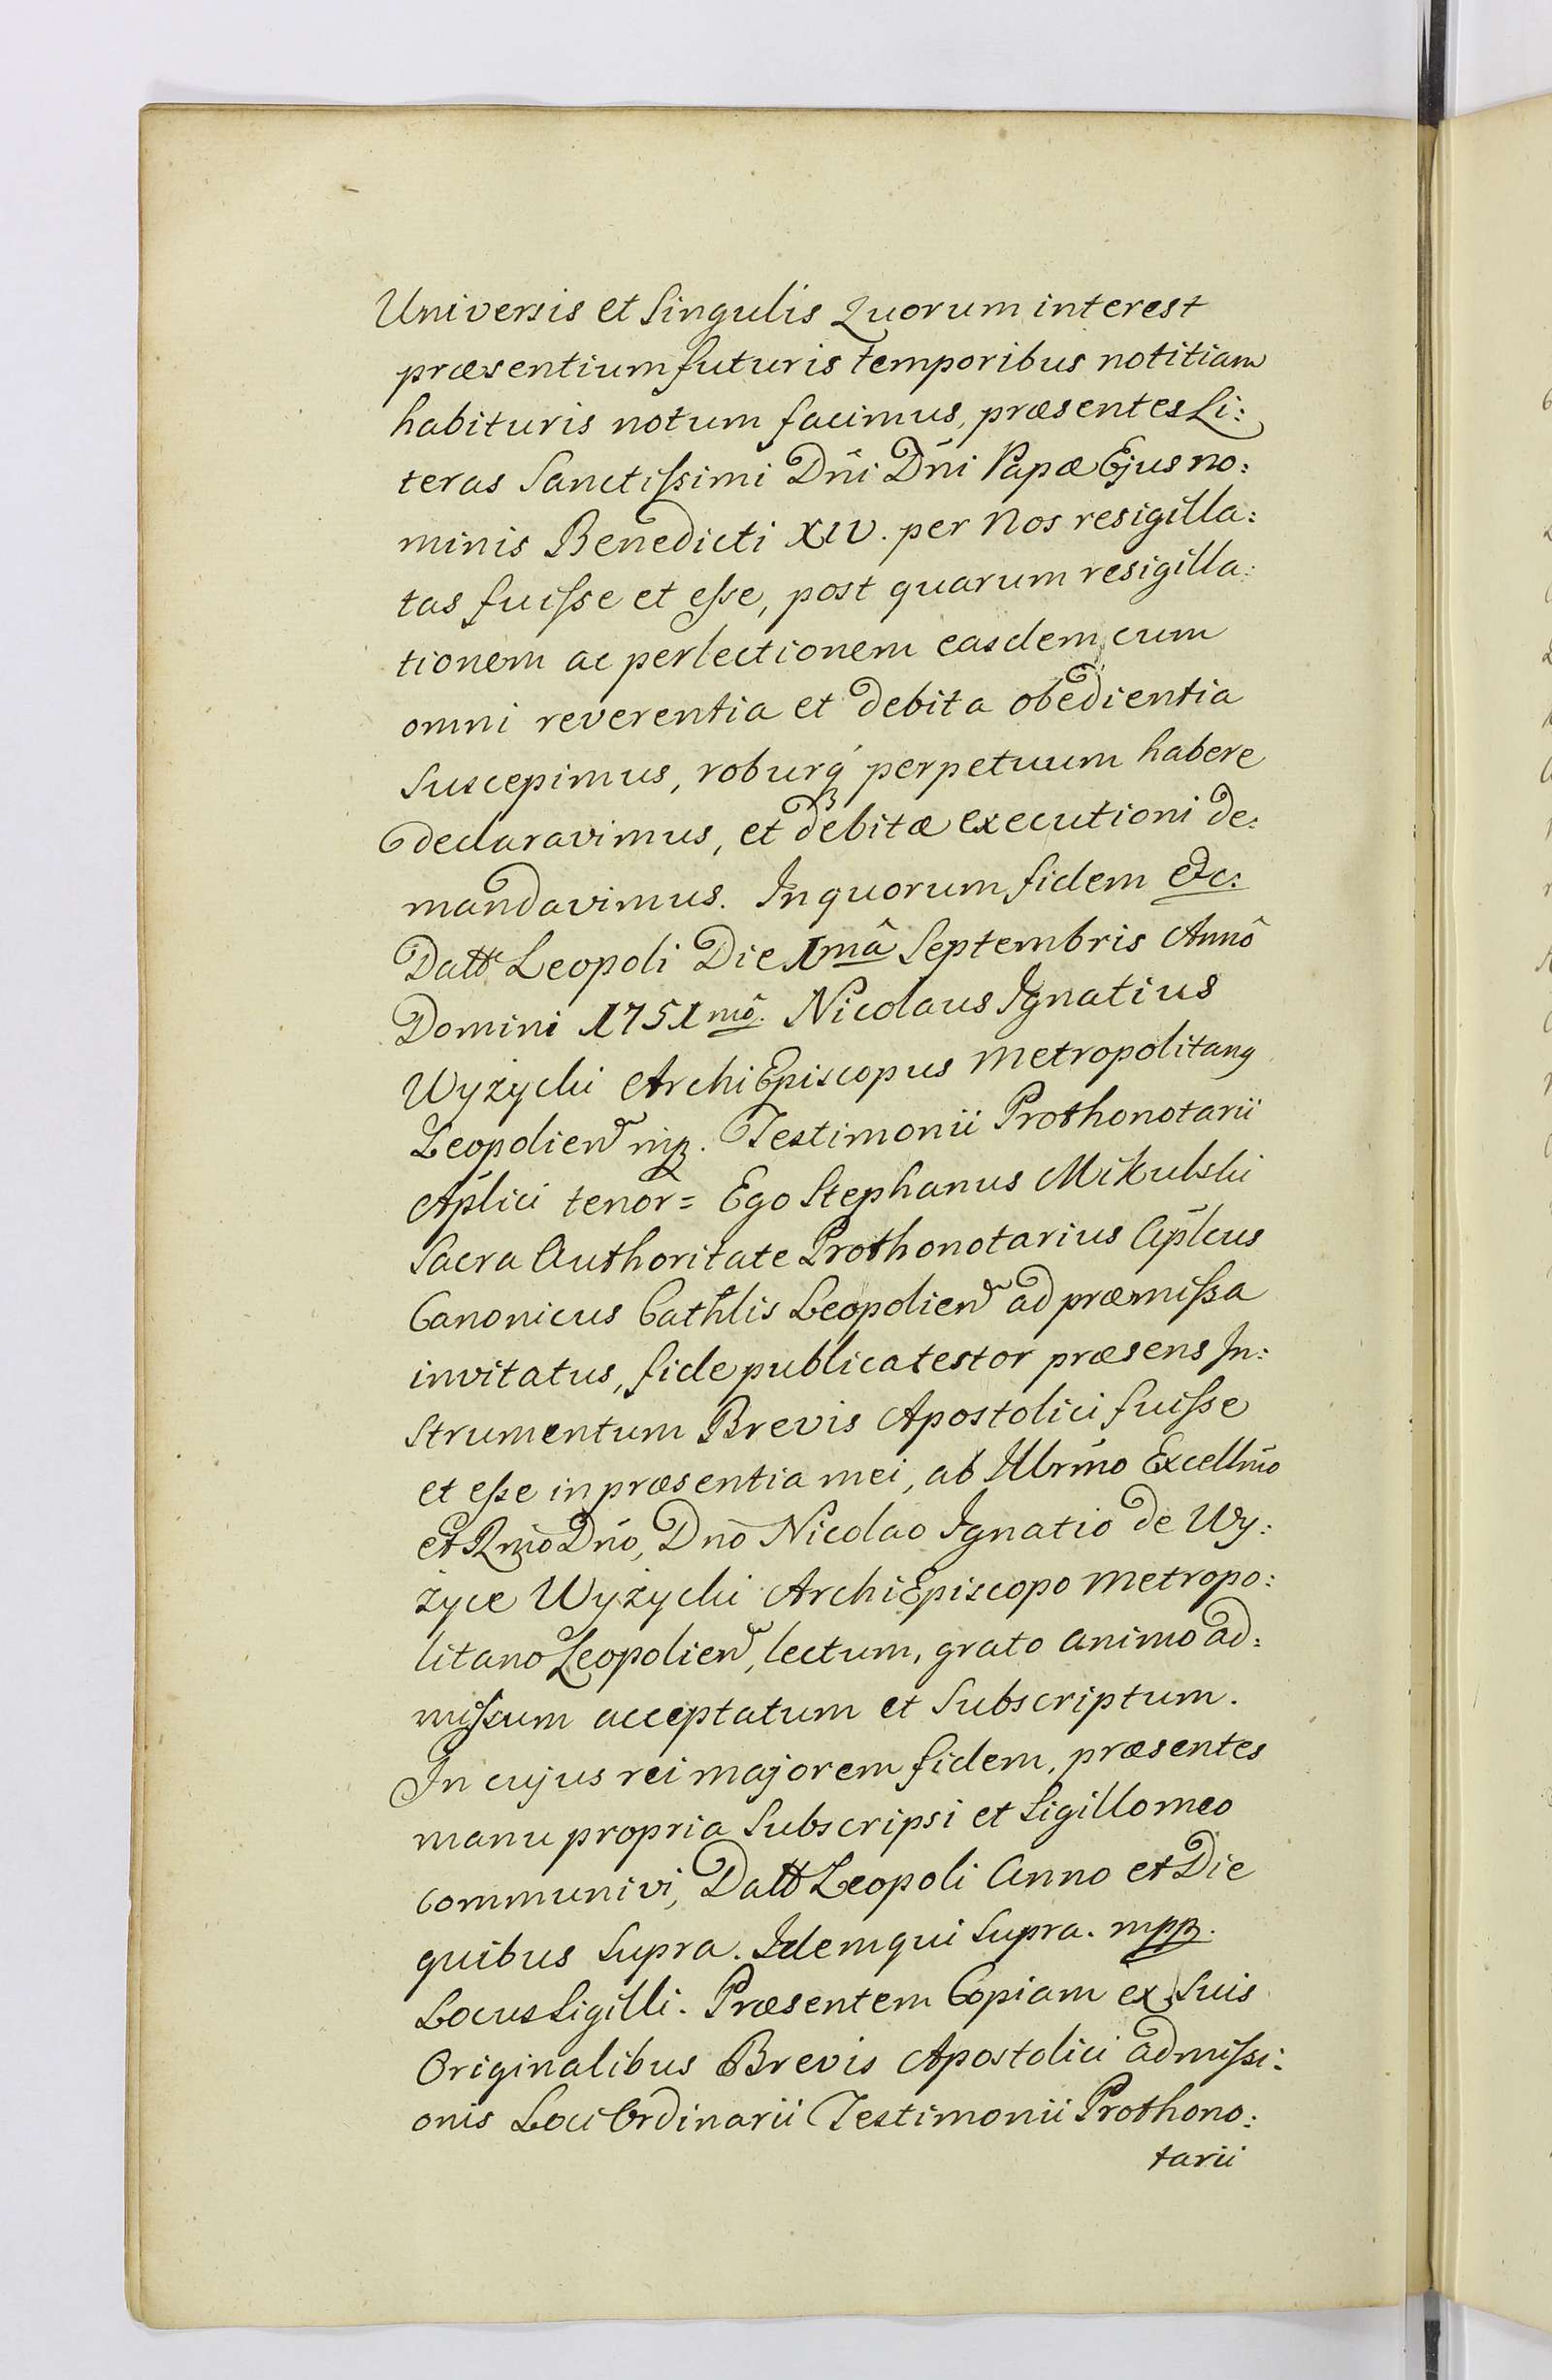 Universis et Singulis Quorum interest
præsentium futuris temporibus notitiam
habituris notum facimus, præsentes Li:
teras Sanctissimi Dñi Dñi Papæ Ejus no:
minis Benedicti XIV. per Nos resigilla:
tas fuisse et esse, post quarum resigilla:
tionem ac perlectionem easdem cum
omni reverentia et debita obedientia
Suscepimus, roburq́ perpetuum habere
declaravimus, et debitæ executioni de:
mandavimus. In quorum fidem etc:
Datt Leopoli Die 1mâ Septembris Annô
Domini 1751mô. Nicolaus Ignatius
Wyżycki ArchiEpiscopus Metropolitang
Leopolien mp. Testimonii Prothonotarii
Aplici tenor = Ego Stephanus Mikulski
Sacra Authoritate Prothonotarius Aplcus
Canonicus Cathlis Leopolien ad præmissa
invitatus, fide publica testor præsens In:
Strumentum Brevis Apostolici fuisse
et esse in præsentia mei, ab Illrm̃o Excellm̃o
et Rm̃o Dño, Dño Nicolao Ignatio de Wy:
życe Wyżycki ArchiEpiscopo Metropo:
litano Leopolien, lectum, grato animo ad:
missum acceptatum et Subscriptum.
In cujus rei majorem fidem, præsentes
manu propria Subscripsi et Sigillo meo
communivi, Datt Leopoli Anno et Die
quibus Supra. Idem qui Supra. mpp.
Locus Sigilli. Præsentem Copiam ex Suis
Originalibus Brevis Apostolici admissi:
onis Loci Ordinarii Testimonii Prothono:
tarii